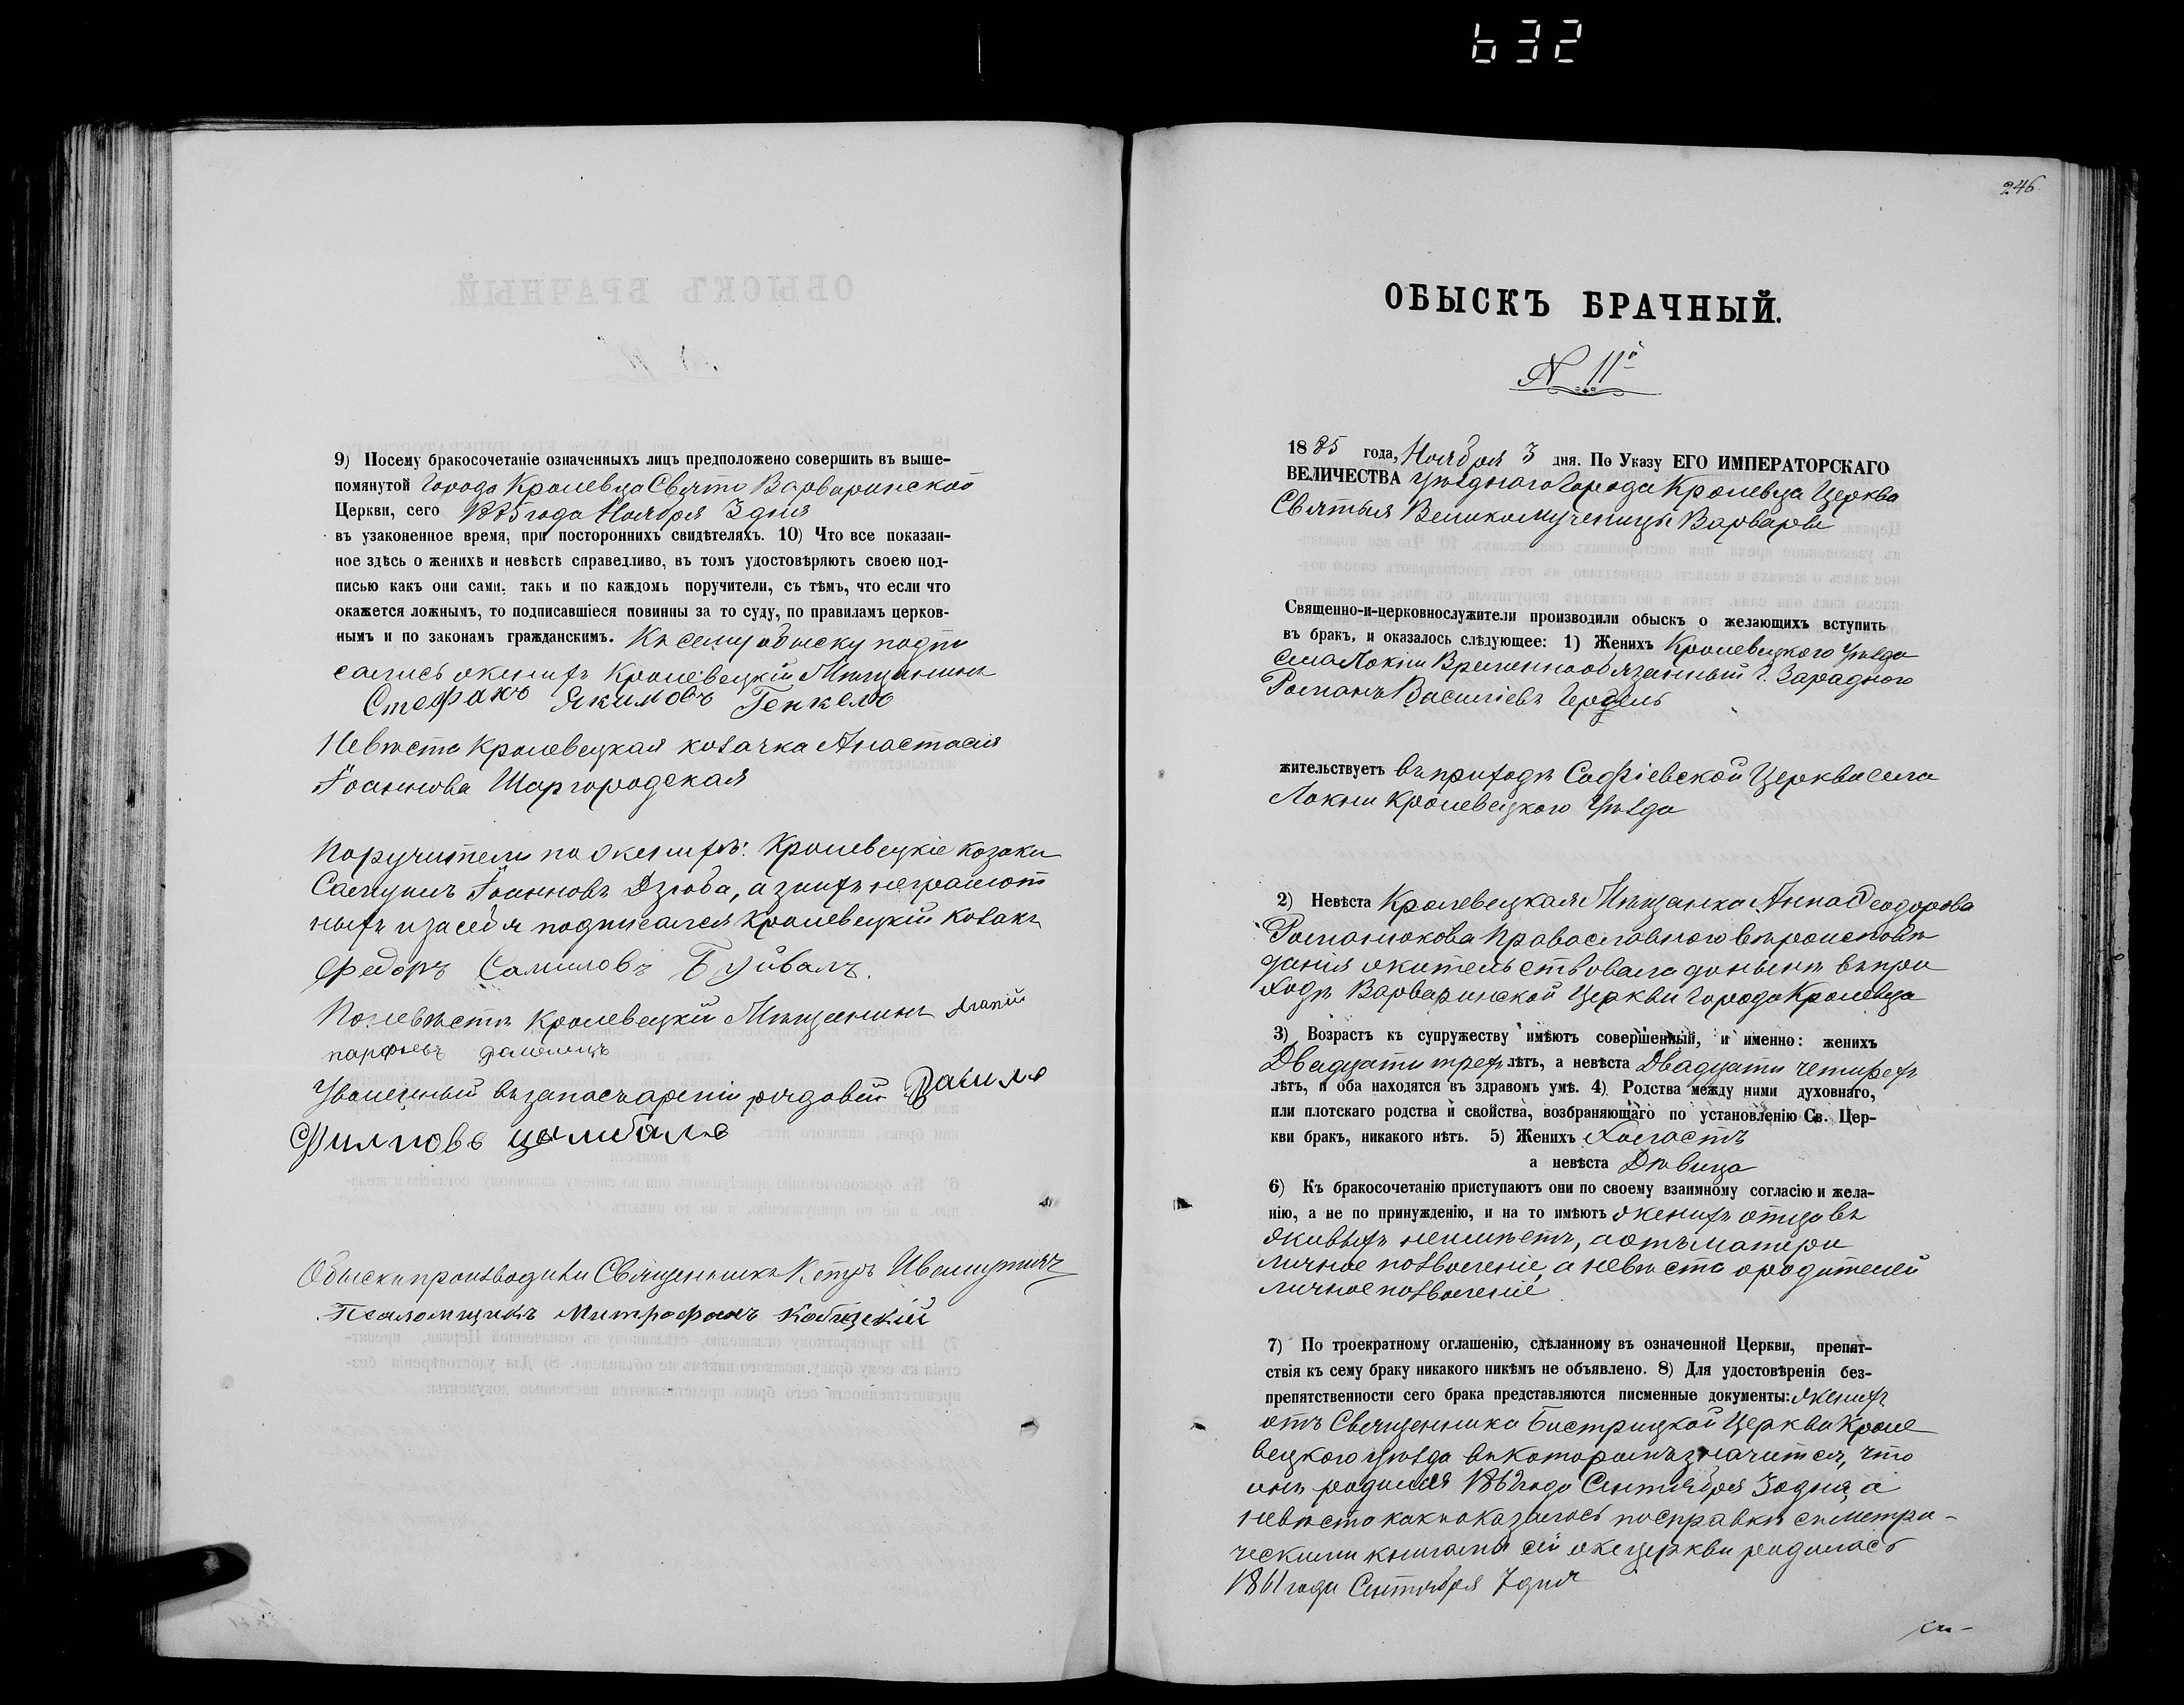 632
9) Посему бракосочетаніе означенныхъ лицъ предположено совершить въ выше-
помянутой Города Кролевца Свято Варваринской
Церкви, сего 1885 года Ноября 3 дня
въ узаконенное время, при постороннихъ свидѣтеляхъ. 10) Что все показан-
ное здѣсь о женихѣ и невѣстѣ справедливо, въ томъ удостовѣряютъ своею под-
писью какъ они сами, такъ и по каждомъ поручители, съ тѣмъ, что если что
окажется ложнымъ, то подписавшіеся повинны за то суду, по правиламъ церков-
нымъ и по законамъ гражданскимъ. Къ сему обыску подпи
сались женихъ Кролевецкій Мѣщанинъ
Стефанъ Якимовъ Генкель
Невѣста Кролевецкая козачка Анастасія
Іоаннова Шаргородская
Поручители по женихѣ: Кролевецкіе козаки
Самуилъ Іоанновъ Дзюба, а за нихъ неграмот
ныхъ и за себя подписался Кролевецкій козакъ
Федоръ Самиловъ Буйвалъ.
По невѣстѣ Кролевецкій Мѣщанинъ
Уволенный въ запасъ арміи рядовой Данило
Филиповъ Цымбалъ
Обыскъ производили Священникъ Петръ
Псаломщикъ Митрофанъ
246
ОБЫСКЪ БРАЧНЫЙ.
N 11й
1885 года, Ноября 3 дня. По Указу ЕГО ИМПЕРАТОРСКАГО
ВЕЛИЧЕСТВА Уѣзднаго Города Кролевца Церкви
Святыя Великомученицы Варвары
Священно-и-церковнослужители производили обыскъ о желающихъ вступить
въ бракъ, и оказалось слѣдующее: 1) Женихъ Кролевецкого Уѣзда
села Локни Временнообязанный Г. Зарадного
Романъ Василіевъ
жительствуетъ въ приходѣ Софіевской Церкви села
Локни Кролевецкого Уѣзда
2) Невѣста Кролевецкая Мѣщанка Анна Феодорова
Романюкова Православного вѣроисповѣ
данія жительствовала донынѣ въ при
ходѣ Варваринской Церкви Города Кролевца
3) Возрастъ къ супружеству имѣютъ совершенный, и именно: женихъ
Двадцати трехъ лѣтъ, а невѣста Двадцати четырехъ
лѣтъ, и оба находятся въ здравомъ умѣ. 4) Родства между ними духовнаго,
или плотскаго родства и свойства, возбраняющаго по установленію Св. Цер-
кви бракъ, никакого нѣтъ. 5) Женихъ Холостъ
а невѣста Дѣвица
6) Къ бракосочетанію приступаютъ они по своему взаимному согласію и жела-
нію, а не по принужденію, и на то имѣютъ женихъ отца въ
живыхъ неимѣетъ, а отъ матери
личное позволеніе, а невѣста родителей
личное позволеніе
7) По троекратному оглашенію, сдѣланному въ означенной Церкви, препят-
ствія къ сему браку никакого никѣмъ не объявлено. 8) Для удостовѣренія без-
препятственности сего брака представляются писменные документы: женихъ
отъ Священника Быстрицкой Церкви Кроле
вецкого уѣзда въ которомъ значится, что
онъ родился 1862 года Сентября 30 дня, а
невѣста какъ оказалось по справкѣ съ метри-
ческими книгами сей же церкви родилась
1861 года Сентября 7 дня